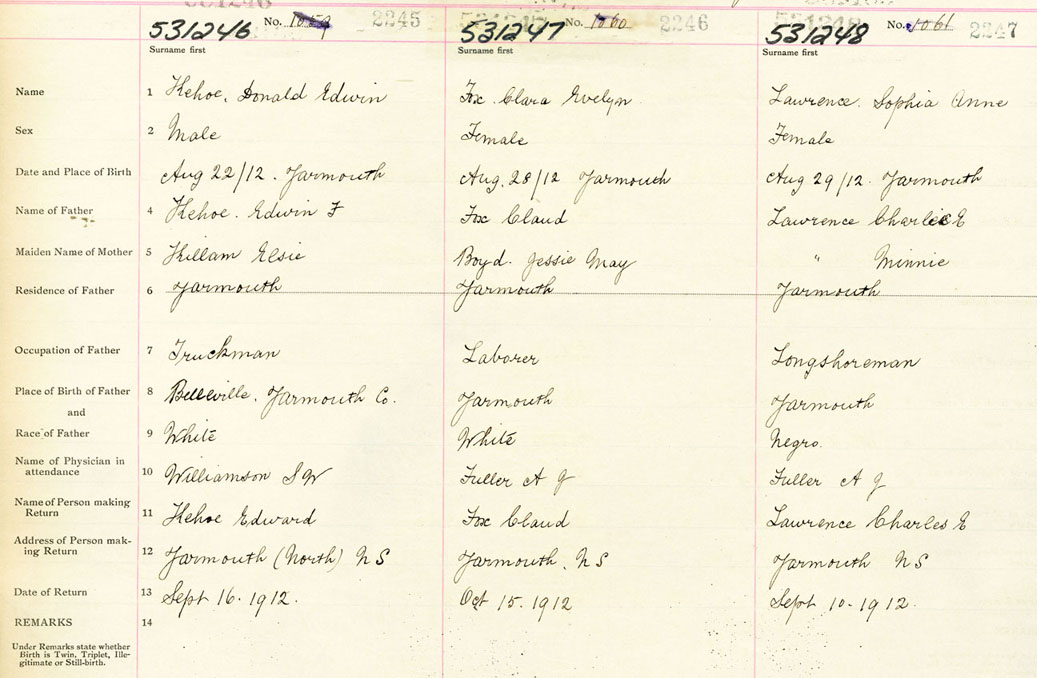 531246 No. 1059 2245 531247 No. 1060 2246 531248 No. 1061 2247
Surname first Surname first Surname first
Name 1 Kehoe, Donald Edwin Fox. Clara Evelyn. Lawrence. Sophia Anne
Sex 2 Male Female Female
Date and Place of Birth Aug 22/12. Yarmouth Aug. 28/12 Yarmouth Aug 29/12. Yarmouth
Name of Father 4 Kehoe. Edwin F Fox Claud Lawrence Charlie E
Maiden Name of Mother 5 Killam Elsie Boyd. Jessie May " Minnie
Residence of Father 6 Yarmouth Yarmouth Yarmouth
Occupation of Father 7 Truckman Laborer Longshoreman
Place of Birth of Father 8 Belleville. Yarmouth Co. Yarmouth Yarmouth
and
Race of Father 9 White White Negro.
Name of Physician in
attendance 10 Williamson S W Fuller A J Fuller A J
Name of Person making
Return 11 Kehoe Edward Fox Claud Lawrence Charles E
Address of Person mak-
ing Return 12 Yarmouth (North) N S Yarmouth. N S Yarmouth N S
Date of Return 13 Sept 16. 1912. Oct 15. 1912 Sept 10. 1912.
REMARKS 14
Under Remarks state whether
Birth is Twin, Triplet, Ille-
gitimate or Still-birth.